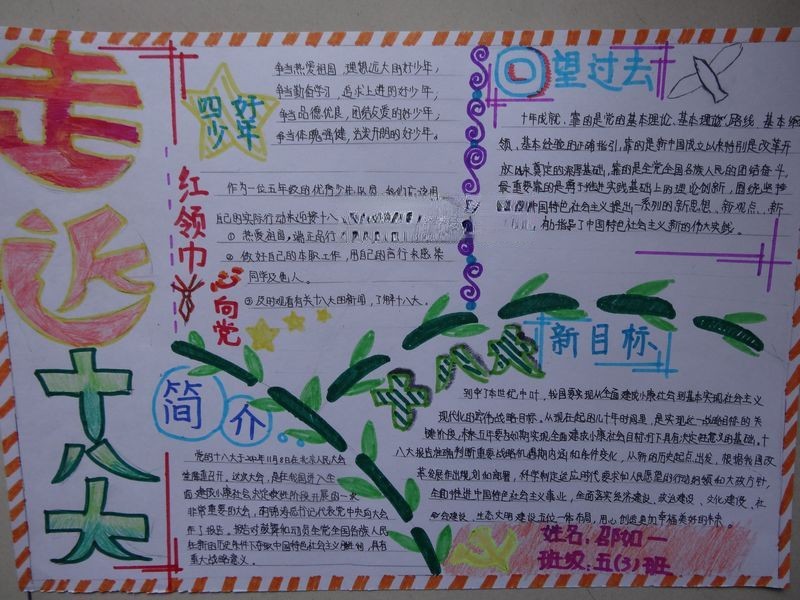 走近十八大
四好少年
争当热爱祖国、理想远大的好少年,
争当勤奋学习、追求上进的好少年,
争当品德优良、团结友爱的好少年,
争当体魄强健、活泼开朗的好少年。
红领巾心向党
作为一位五年级的优秀少年队员,我们应该用
自己的实际行动来迎接十八
① 热爱祖国,端正品行
② 做好自己的本职工作,用自己的言行来感染
同学及他人。
③ 及时观看有关十八大的新闻,了解十八大。
回望过去
十年成就,靠的是党的基本理论、基本路线、基本纲
领、基本经验的正确指引,靠的是新中国成立以来特别是改革开
放以来奠定的深厚基础,靠的是全党全国各族人民的团结奋斗。
最重要靠的是勇于推进实践基础上的理论创新,围绕坚持
中国特色社会主义提出一系列的新思想、新观点、新
有力指导了中国特色社会主义新的伟大实践。
简介
党的十八大于2012年11月8日在北京人民大会
堂隆重召开。这次大会,是在我国进入全
面建设小康社会决定性阶段召开的一次
非常重要的大会,胡锦涛同志代表党中央向大会
作了报告。报告对鼓舞和动员全党全国各族人民
在新的历史条件下夺取中国特色社会主义胜利,具有
重大战略意义。
十八大
新目标
到本世纪中叶,我国要实现从全面建成小康社会到基本实现社会主义
现代化的宏伟战略目标。从现在起的几十年时间里,是实现这一战略目标的关
键阶段,未来五年要为如期实现全面建成小康社会目标打下具有决定性意义的基础。十
八大报告准确判断重要战略机遇期内涵和条件变化,从新的历史起点出发,根据我国改
革发展作出规划和部署,科学制定适应时代要求和人民愿望的行动纲领和大政方针,
全面推进中国特色社会主义事业,全面落实经济建设、政治建设、文化建设、社
会建设、生态文明建设五位一体布局,用心创造更加幸福美好的未来。
姓名:邵如一
班级:五(3)班